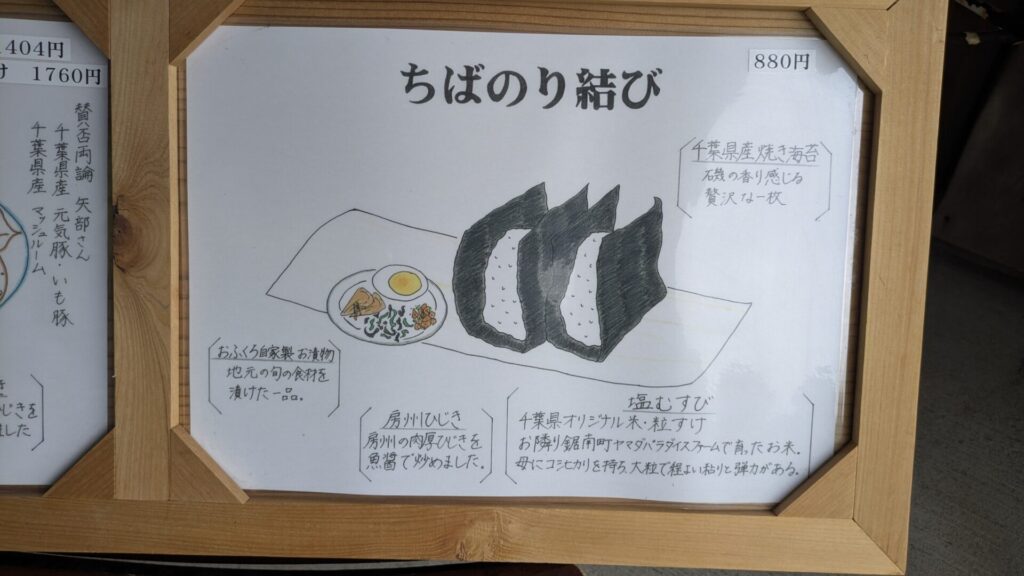 404円
け 1760円
賛否両論 矢部さん
千葉県産 元気豚・いも豚
千葉県産 マッシュルーム
じきを
ました
ちばのり結び
880円
千葉県産焼き海苔
磯の香り感じる
贅沢な一枚
おふくろ自家製お漬物
地元の旬の食材を
漬けた一品。
房州ひじき
房州の肉厚ひじきを
魚醤で炒めました。
塩むすび
千葉県オリジナル米・粒すけ
お隣り鋸南町ヤマダパラダイスファームで育ったお米。
母にコシヒカリを持ち、大粒で程よい粘りと弾力がある。